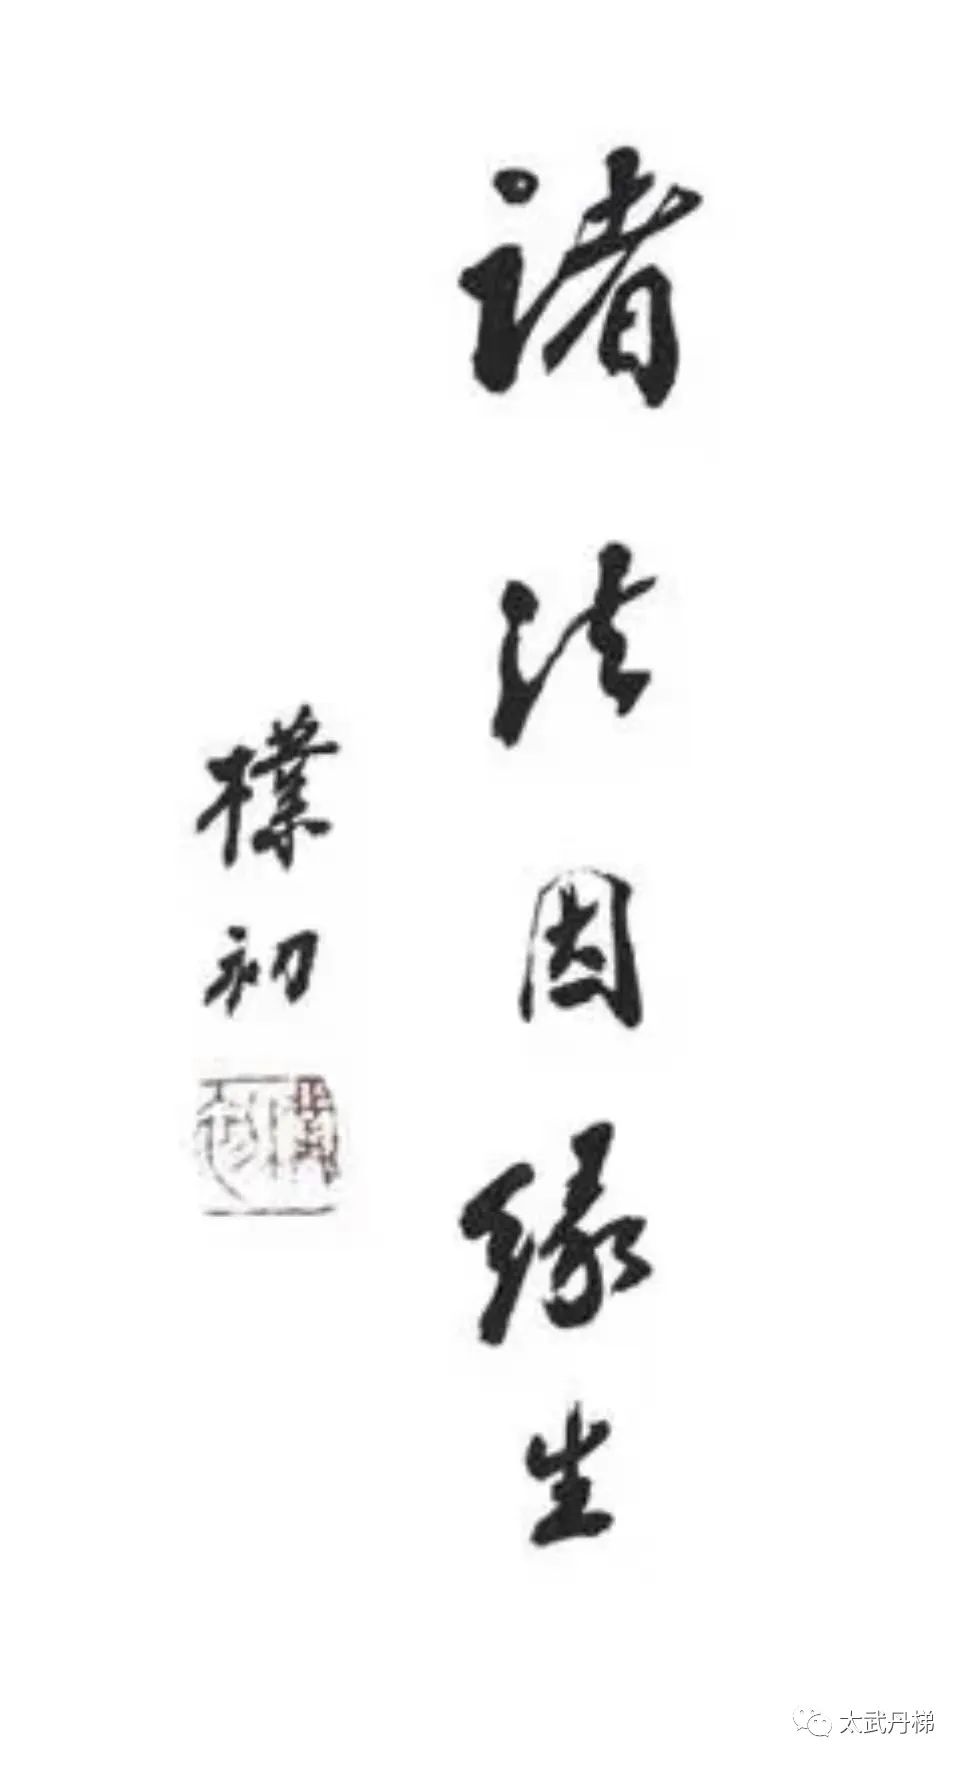 诸法因缘生
樸初
太武丹梯